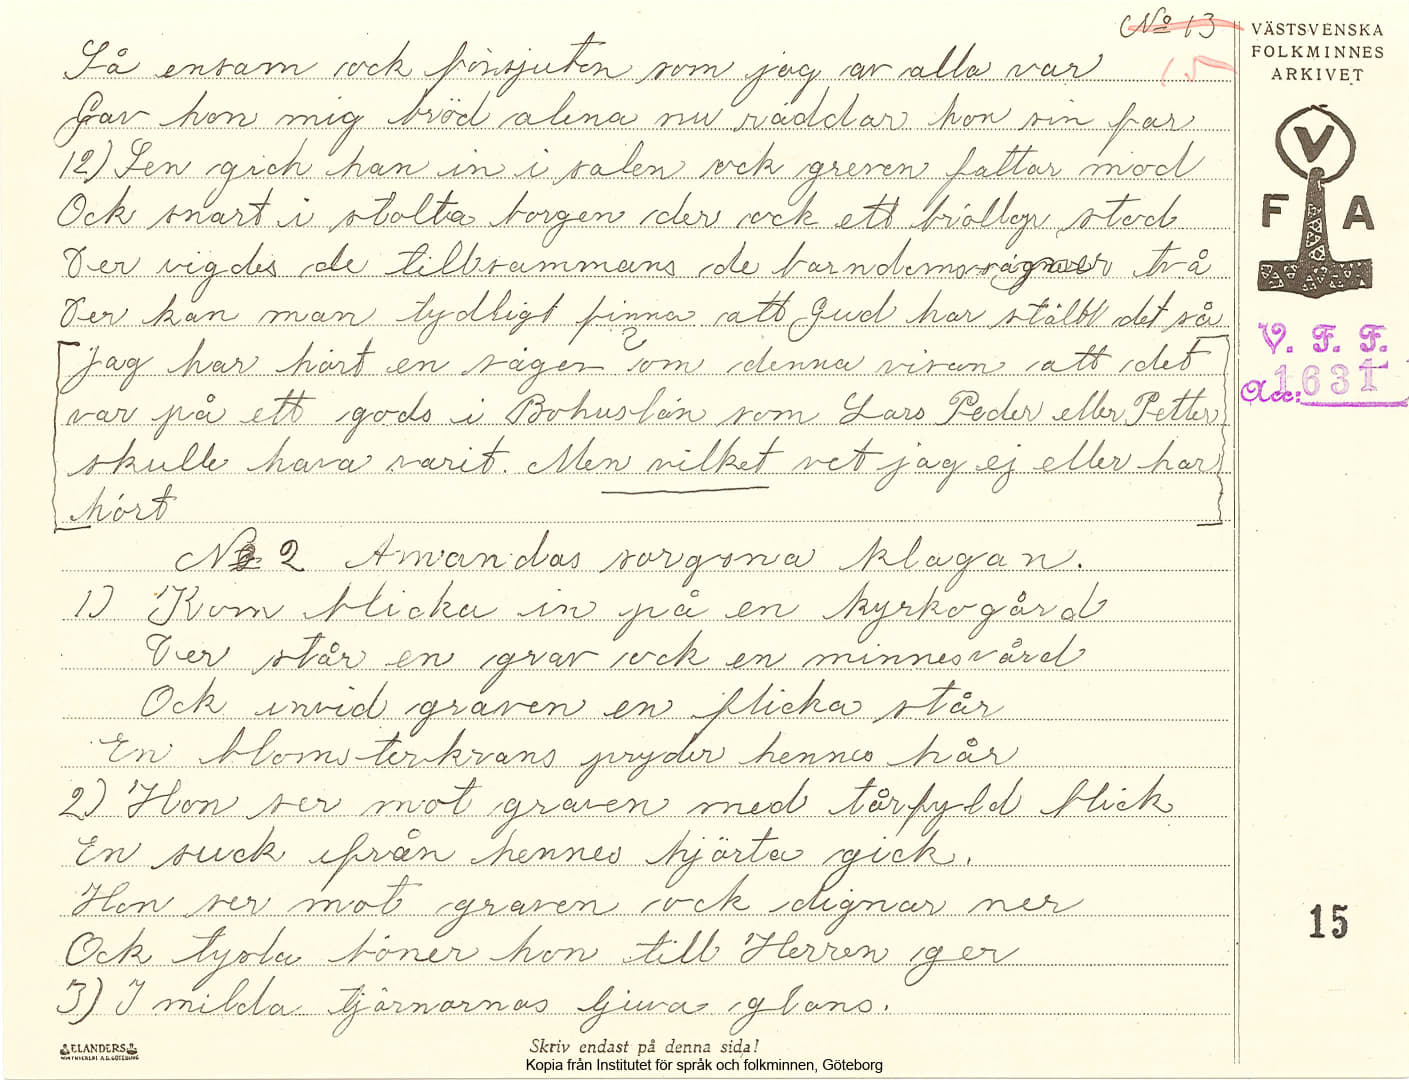 No 13
VÄSTSVENSKA
FOLKMINNES
ARKIVET
V
F A
V. F. F.
Acc: 1631
15
Så ensam ock försjuten som jag av alla var
Gav hon mig bröd alena nu räddar hon sin far
12) Sen gich han in i salen ock greven fattar mod
Ock snart i stolta borgen der ock ett bröllop stod
Der vigdes de tillsammans de barndoms
två
Der kan man tydligt finna att Gud har ställt det så
Jag har hört en sägen om denna visan att det
var på ett gods i Bohuslän som Lars Peder eller Petter
skulle hava varit. Men vilket vet jag ej eller har
hört
No 2 Amandas sorgsna klagan.
1) Kom blicka in på en kyrkogård
Der står en grav ock en minnesvård
Ock invid graven en flicka står
En blomsterkrans pryder hennes hår
2) Hon ser mot graven med tårfyld blick
En suck ifrån hennes hjärta gick.
Hon ser mot graven ock dignar ner
Ock tysta böner hon till Herren ger
3) I milda tjärnornas ljuva glans.
ELANDERS
Skriv endast på denna sida!
Kopia från Institutet för språk och folkminnen, Göteborg